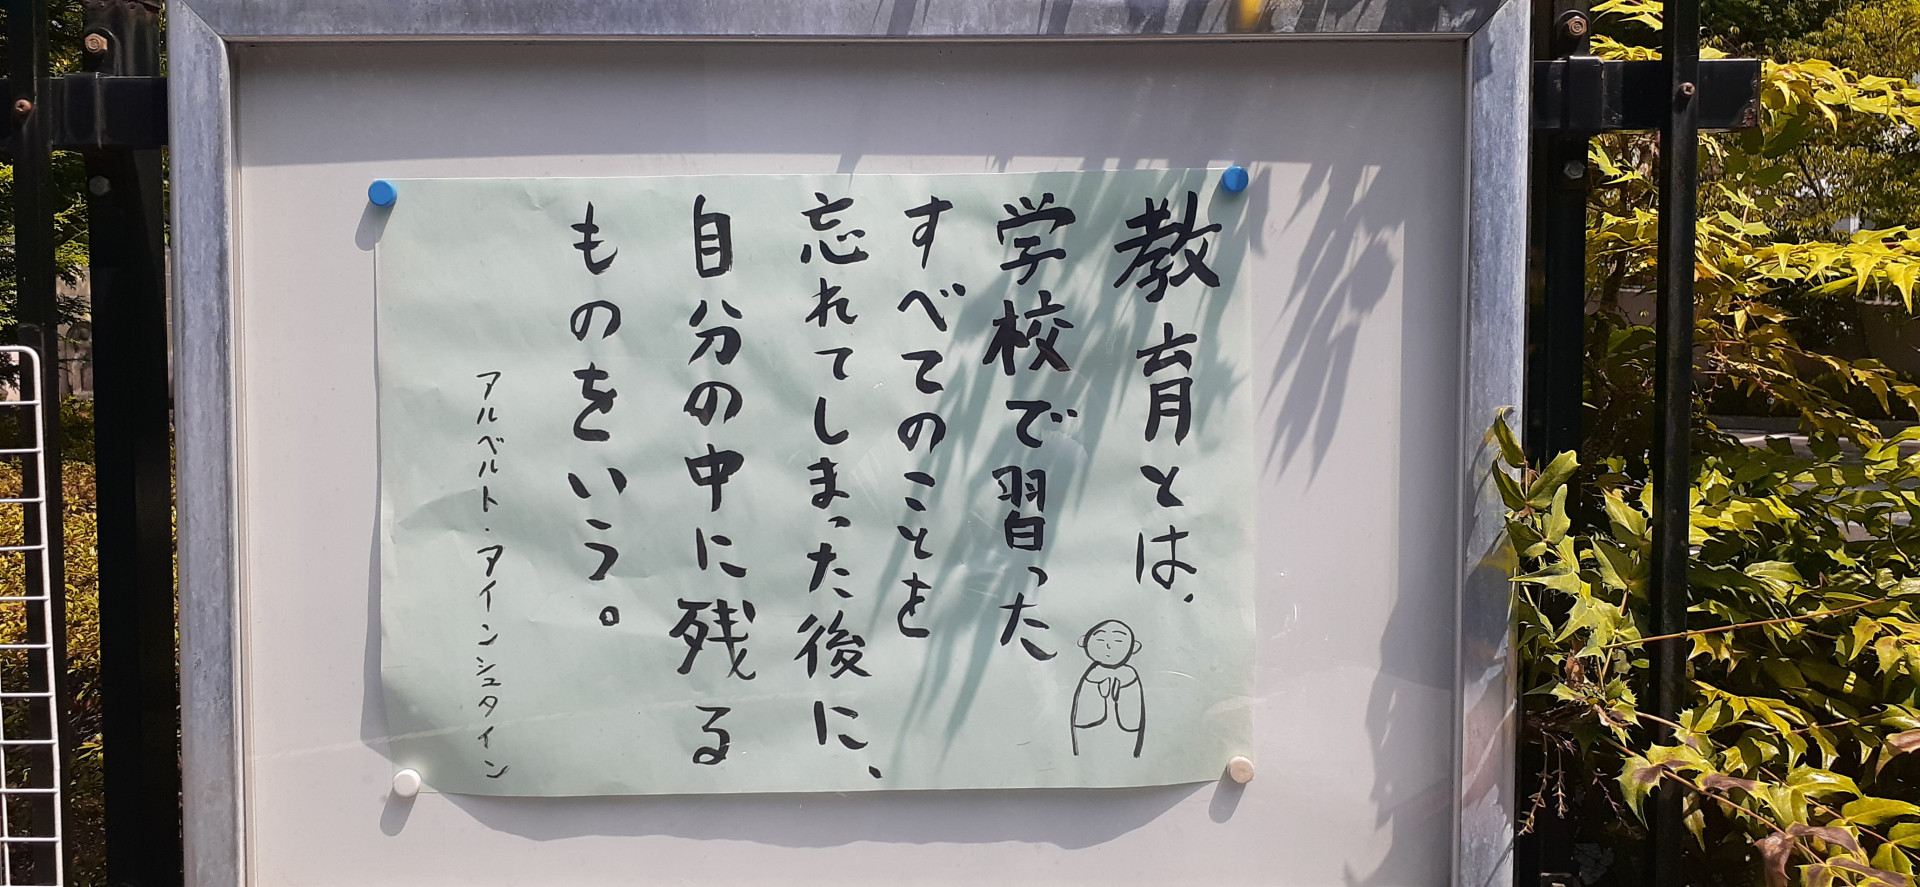 教育とは、
学校で習った
すべてのことを
忘れてしまった後に、
自分の中に残る
ものをいう。
アルベルト・アインシュタイン